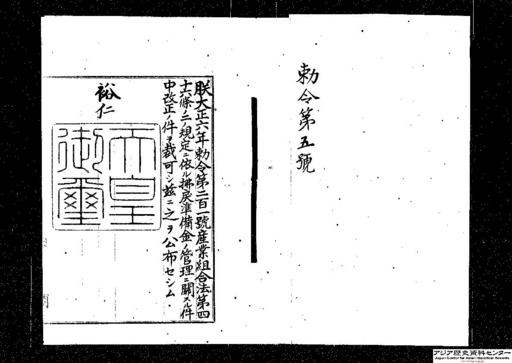 勅令第五號
朕大正六年勅令第二百一號産業組合法第四
十六條ニ規定ニ依ル拂戻準備金ノ管理ニ關スル件
中改正ノ件ヲ裁可シ茲ニ之ヲ公布セシム
裕仁
天皇
御璽
アジア歴史資料センター
Japan Center for Asian Historical Records